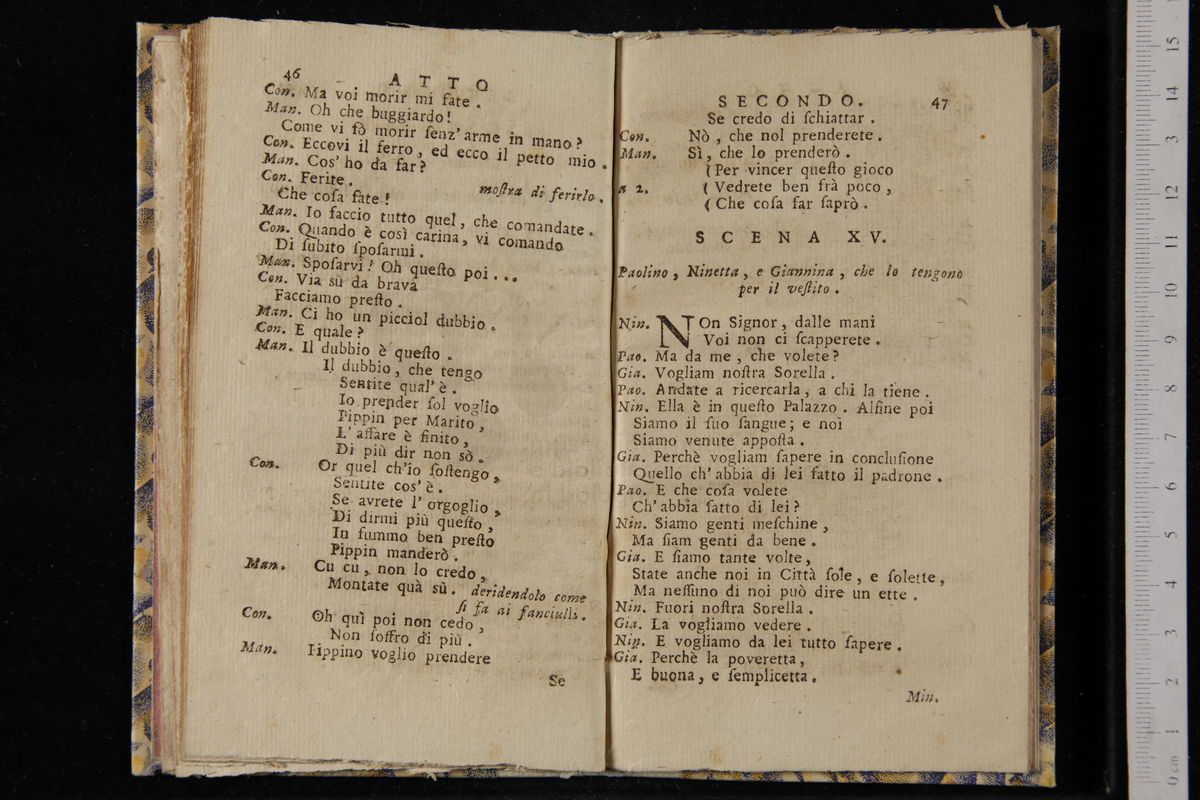 46 ATTO
Con. Ma voi morir mi fate.
Man. Oh che buggiardo!
Come vi fò morir ſenz' arme in mano?
Con. Eccovi il ferro, ed ecco il petto mio.
Man. Cos' ho da far?
Con. Ferite. moſtra di ferirlo.
Che coſa fate!
Man. Io faccio tutto quel, che comandate.
Con. Quando è così carina, vi comando
Di ſubito ſpoſarmi.
Man. Spoſarvi! Oh queſto poi...
Con. Via sù da brava
Facciamo preſto.
Man. Ci ho un picciol dubbio.
Con. E quale?
Man. Il dubbio è queſto.
Il dubbio, che tengo
Sentite qual' è.
Io prender ſol voglio
Pippin per Marito,
L' affare è finito,
Di più dir non sò.
Con. Or quel ch'io ſoſtengo,
Sentite cos' è.
Se avrete l' orgoglio,
Di dirmi più queſto,
In fummo ben preſto
Pippin manderò.
Man. Cu cu, non lo credo,
Montate quà sù. deridendolo come
ſi fa ai fanciulli.
Con. Oh quì poi non cedo,
Non ſoffro di più.
Man. Pippino voglio prendere
Se
SECONDO. 47
Se credo di ſchiattar.
Con. Nò, che nol prenderete.
Man. Sì, che lo prenderò.
(Per vincer queſto gioco
a 2. (Vedrete ben frà poco,
(Che coſa far ſaprò.
SCENA XV.
Paolino, Ninetta, e Giannina, che lo tengono
per il veſtito.
Nin. NOn Signor, dalle mani
Voi non ci ſcapperete.
Pao. Ma da me, che volete?
Gia. Vogliam noſtra Sorella.
Pao. Andate a ricercarla, a chi la tiene.
Nin. Ella è in queſto Palazzo. Alfine poi
Siamo il ſuo ſangue; e noi
Siamo venute appoſta.
Gia. Perchè vogliam ſapere in concluſione
Quello ch' abbia di lei fatto il padrone.
Pao. E che coſa volete
Ch' abbia fatto di lei?
Nin. Siamo genti meſchine,
Ma ſiam genti da bene.
Gia. E ſiamo tante volte,
State anche noi in Città ſole, e ſolette,
Ma neſſuno di noi può dire un ette.
Nin. Fuori noſtra Sorella.
Gia. La vogliamo vedere.
Nin. E vogliamo da lei tutto ſapere.
Gia. Perchè la poveretta,
E buona, e ſemplicetta.
Min.
0 cm 1 2 3 4 5 6 7 8 9 10 11 12 13 14 15